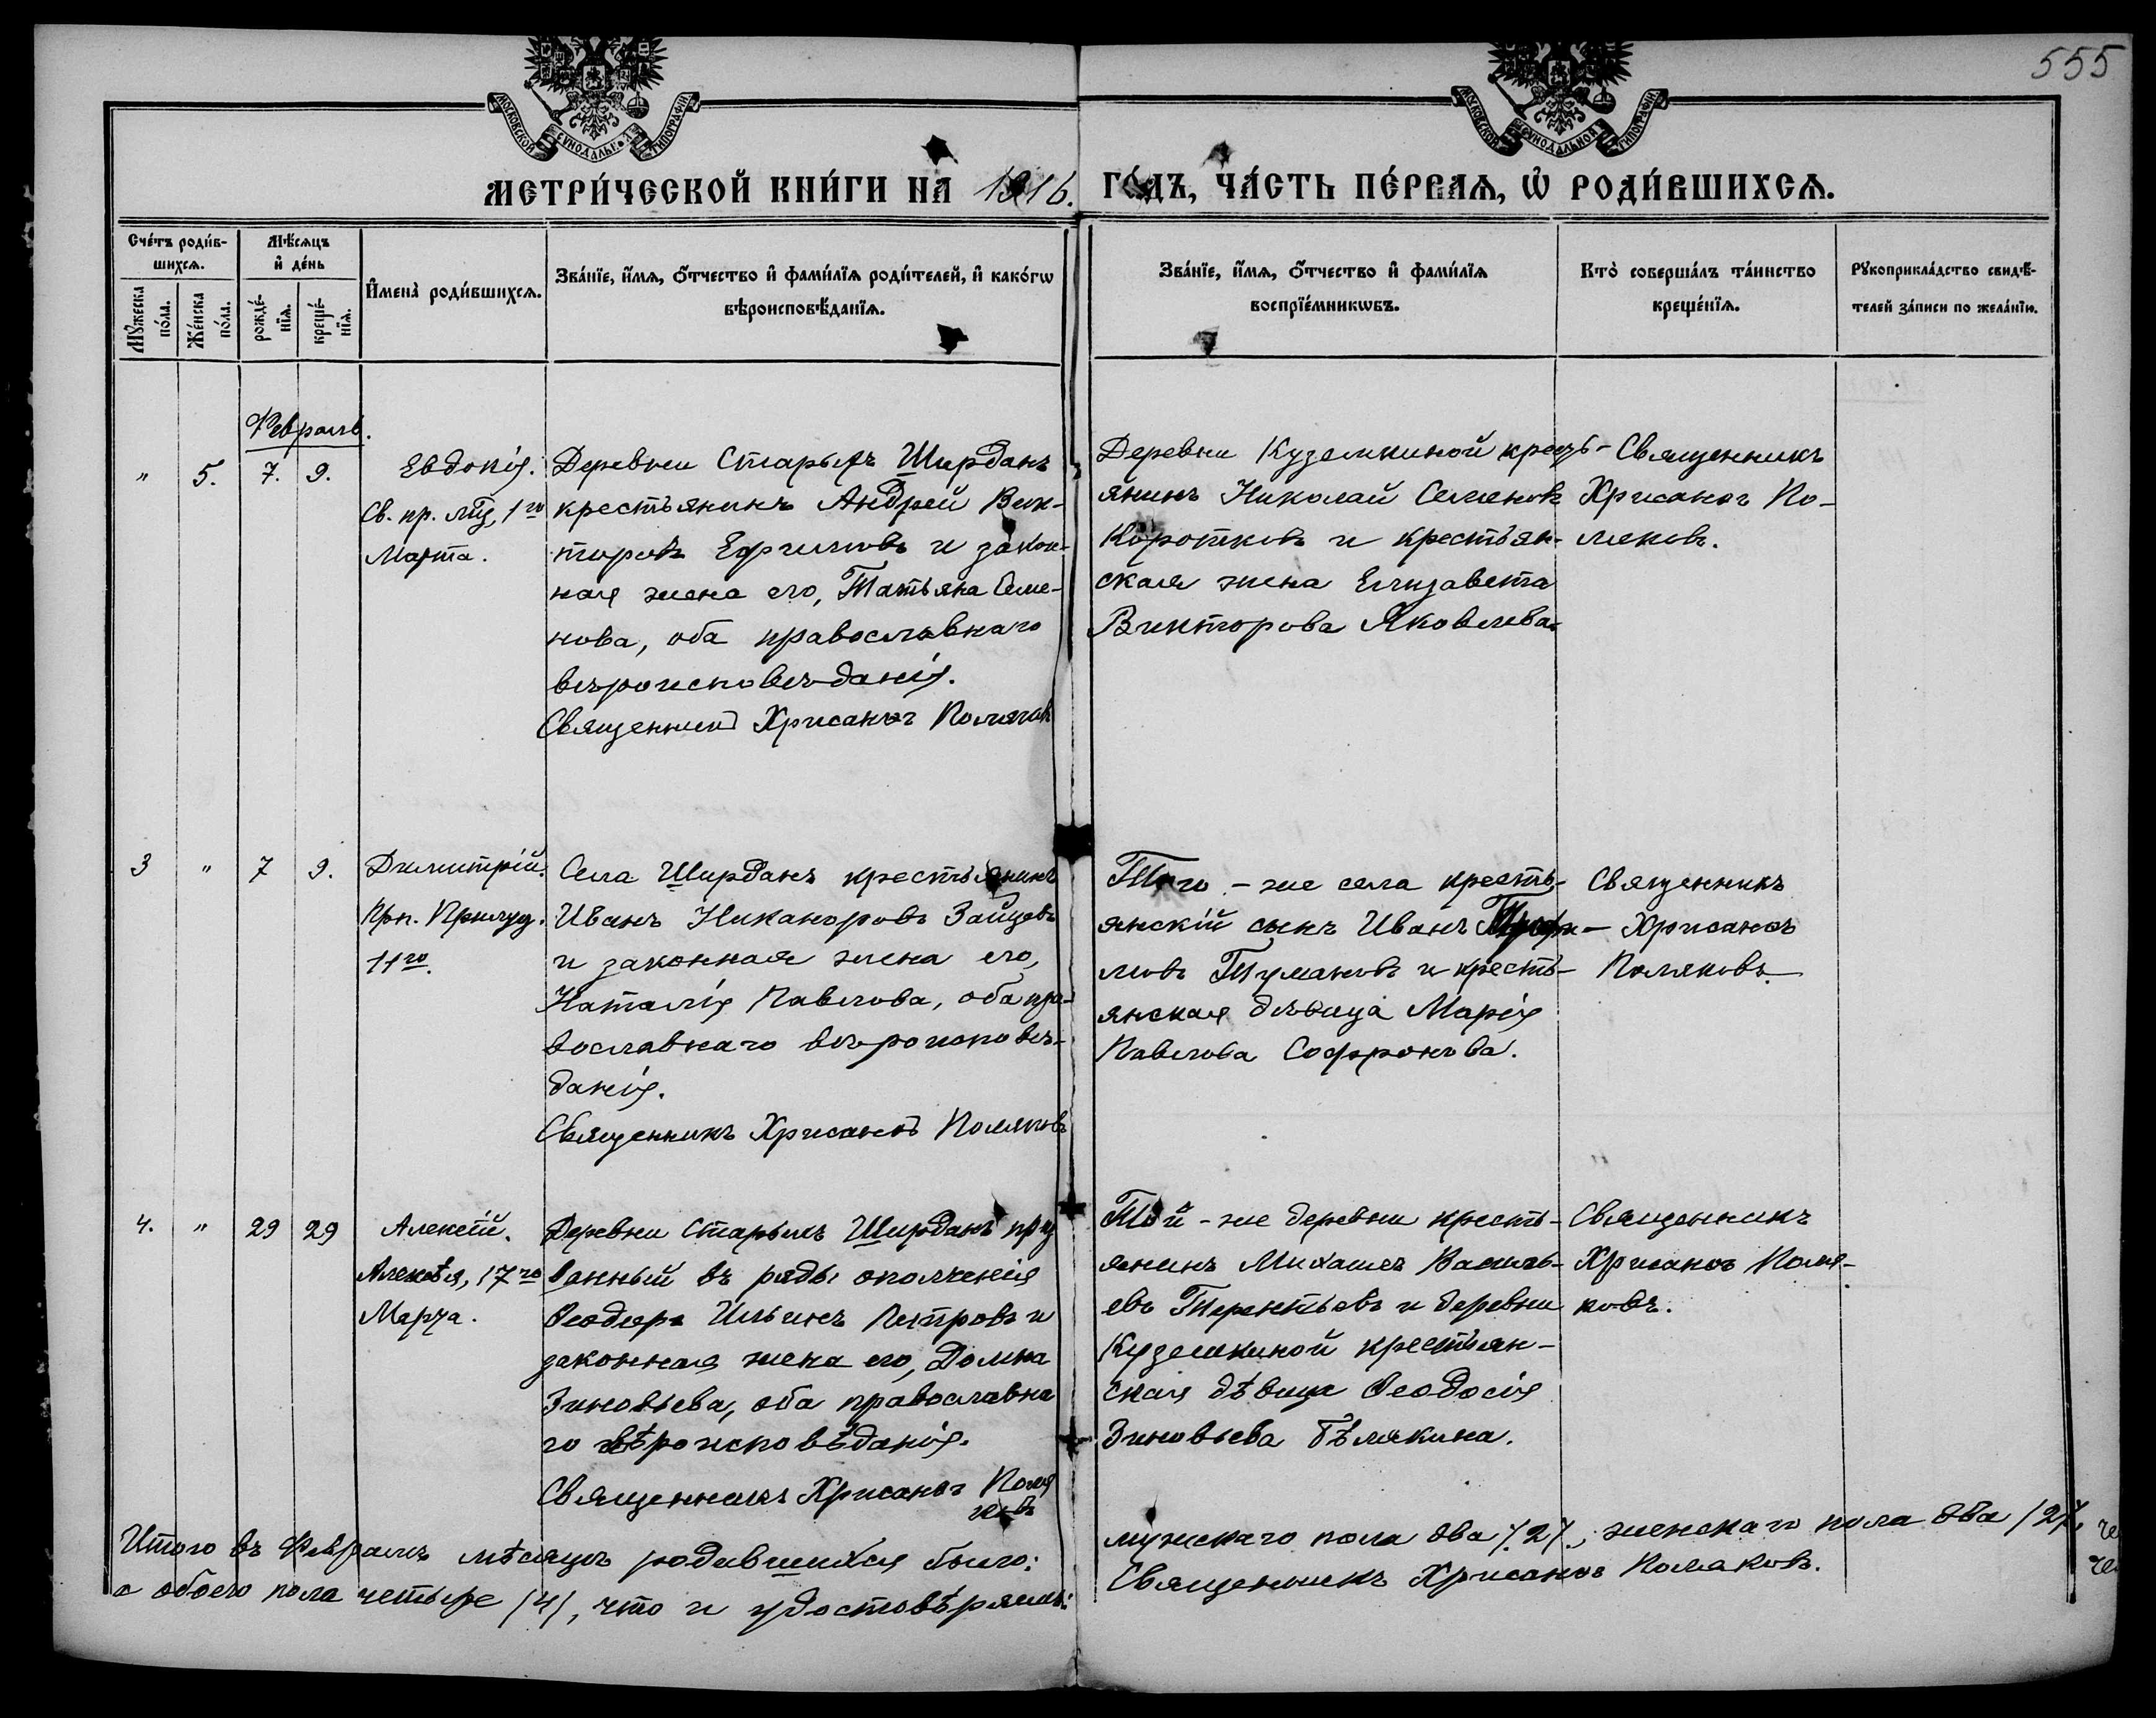 555
МОСКОВСКОЙ СѴНОДАЛЬНОЙ ТИПОГРАФІИ
МОСКОВСКОЙ СѴНОДАЛЬНОЙ ТИПОГРАФІИ
МЕТРИ́ЧЕСКОЙ КНИ́ГИ НА 1916. ГО́ДЪ, ЧА́СТЬ ПЕ́РВАѦ, Ѽ РОДИ́ВШИХСѦ.
Сче́тъ роди́в-
шихсѧ.
Мꙋ́жеска по́ла.
Же́нска по́ла.
Мѣ́сѧцъ
и҆ де́нь
рожде́-
нїѧ.
креще́-
нїѧ.
И҆мена̀ роди́вшихсѧ.
Зва́нїе, и҆́мѧ, ѻ҆́тчество и҆ фами́лїѧ роди́телей, и҆ како́гѡ
вѣроисповѣ́данїѧ.
Зва́нїе, и҆́мѧ, ѻ҆́тчество и҆ фами́лїѧ
воспрїе́мникѡвъ.
Кто̀ соверша́лъ та́инство
креще́нїѧ.
Рꙋкоприкла́дство свидѣ́-
телей за́писи по жела́нїю.
Февраль.
" 5. 7. 9.
Евдокія.
Св. пр. мц, 1го
Марта.
Деревни Старыхъ Ширданъ
крестьянинъ Андрей Вик-
торовъ Ефимовъ и закон-
ная жена его, Татьяна Семе-
нова, оба православнаго
вѣроисповѣданія.
Священникъ Хрисанѳъ Поляковъ
Деревни Куземкиной кресть-
янинъ Николай Семеновъ
Коротковъ и крестьян-
ская жена Елизавета
Викторова Яковлева.
Священникъ
Хрисанѳъ По-
ляковъ.
3 " 7 9.
Димитрій.
Прп. Прилуц.
11го.
Села Ширданъ крестьянинъ
Иванъ Никаноровъ Зайцевъ
и законная жена его,
Наталія Павлова, оба пра-
вославнаго вѣроисповѣ-
данія.
Священникъ Хрисанѳъ Поляковъ
Того-же села кресть-
янскій сынъ Иванъ Трофи-
мовъ Тумановъ и кресть-
янская дѣвица Марія
Павлова Софронова.
Священникъ
Хрисанѳъ
Поляковъ.
4. " 29 29
Алексѣй.
Алексѣя, 17го
Марта.
Деревни Старыхъ Ширданъ приз
ванный въ ряды ополченія
Ѳеодоръ Ильинъ Петровъ и
законная жена его, Домна
Зиновьева, оба православна
го вѣроисповѣданія.
Священникъ Хрисанѳъ Поля
ковъ
Той-же деревни кресть-
янинъ Михаилъ Василь-
евъ Терентьевъ и деревни
Куземкиной крестьян-
ская дѣвица Ѳеодосія
Зиновьева Бѣлякина.
Священникъ
Хрисанѳъ Поля-
ковъ.
Итого въ Февралѣ мѣсяцѣ родившихся было: мужскаго пола два /2/, женскаго пола два /2/,
а обоего пола четыре /4/, что и удостовѣряемъ: Священникъ Хрисанѳъ Поляковъ.